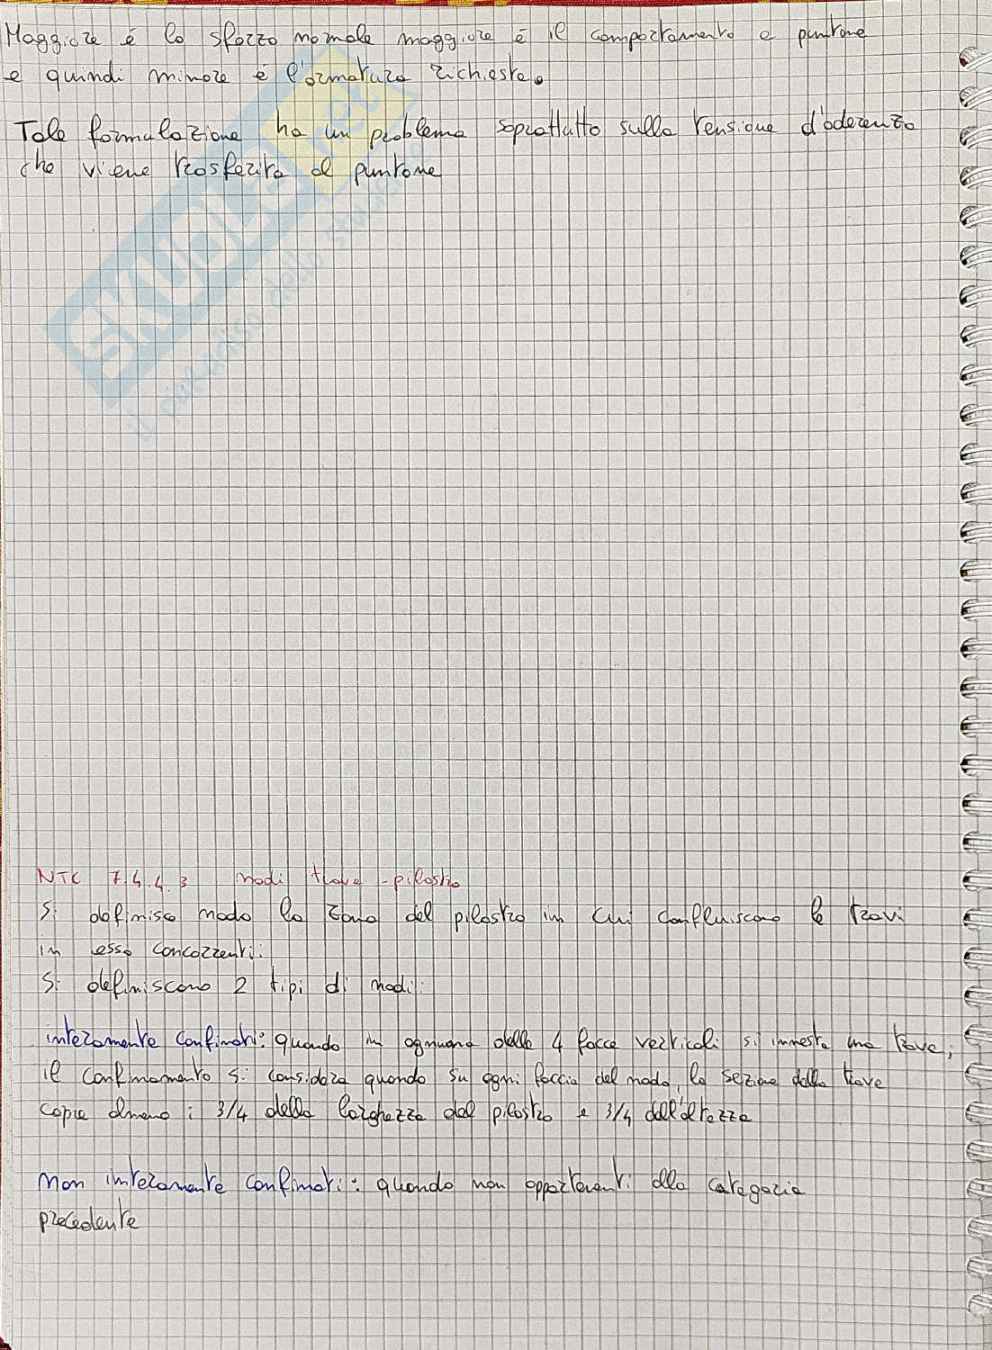 Maggiore è lo sforzo normale maggiore è il comportamento a puntone
e quindi minore è l'armatura richiesta.
Tale formulazione ha un problema soprattutto sulla tensione d'aderenza
che viene trasferita al puntone
SKUOLA.net
il paradiso dello studente
NTC 7.4.4.3 nodi trave-pilastro
Si definisce nodo la zona del pilastro in cui confluiscono le travi
in esso concorrenti.
Si definiscono 2 tipi di nodi:
interamente confinati: quando in ognuna delle 4 facce verticali si innesta una trave;
il confinamento si considera quando su ogni faccia del nodo, la sezione della trave
copre almeno i 3/4 della larghezza del pilastro e 3/4 dell'altezza
Non interamente confinati: quando non appartenenti alla categoria
precedente